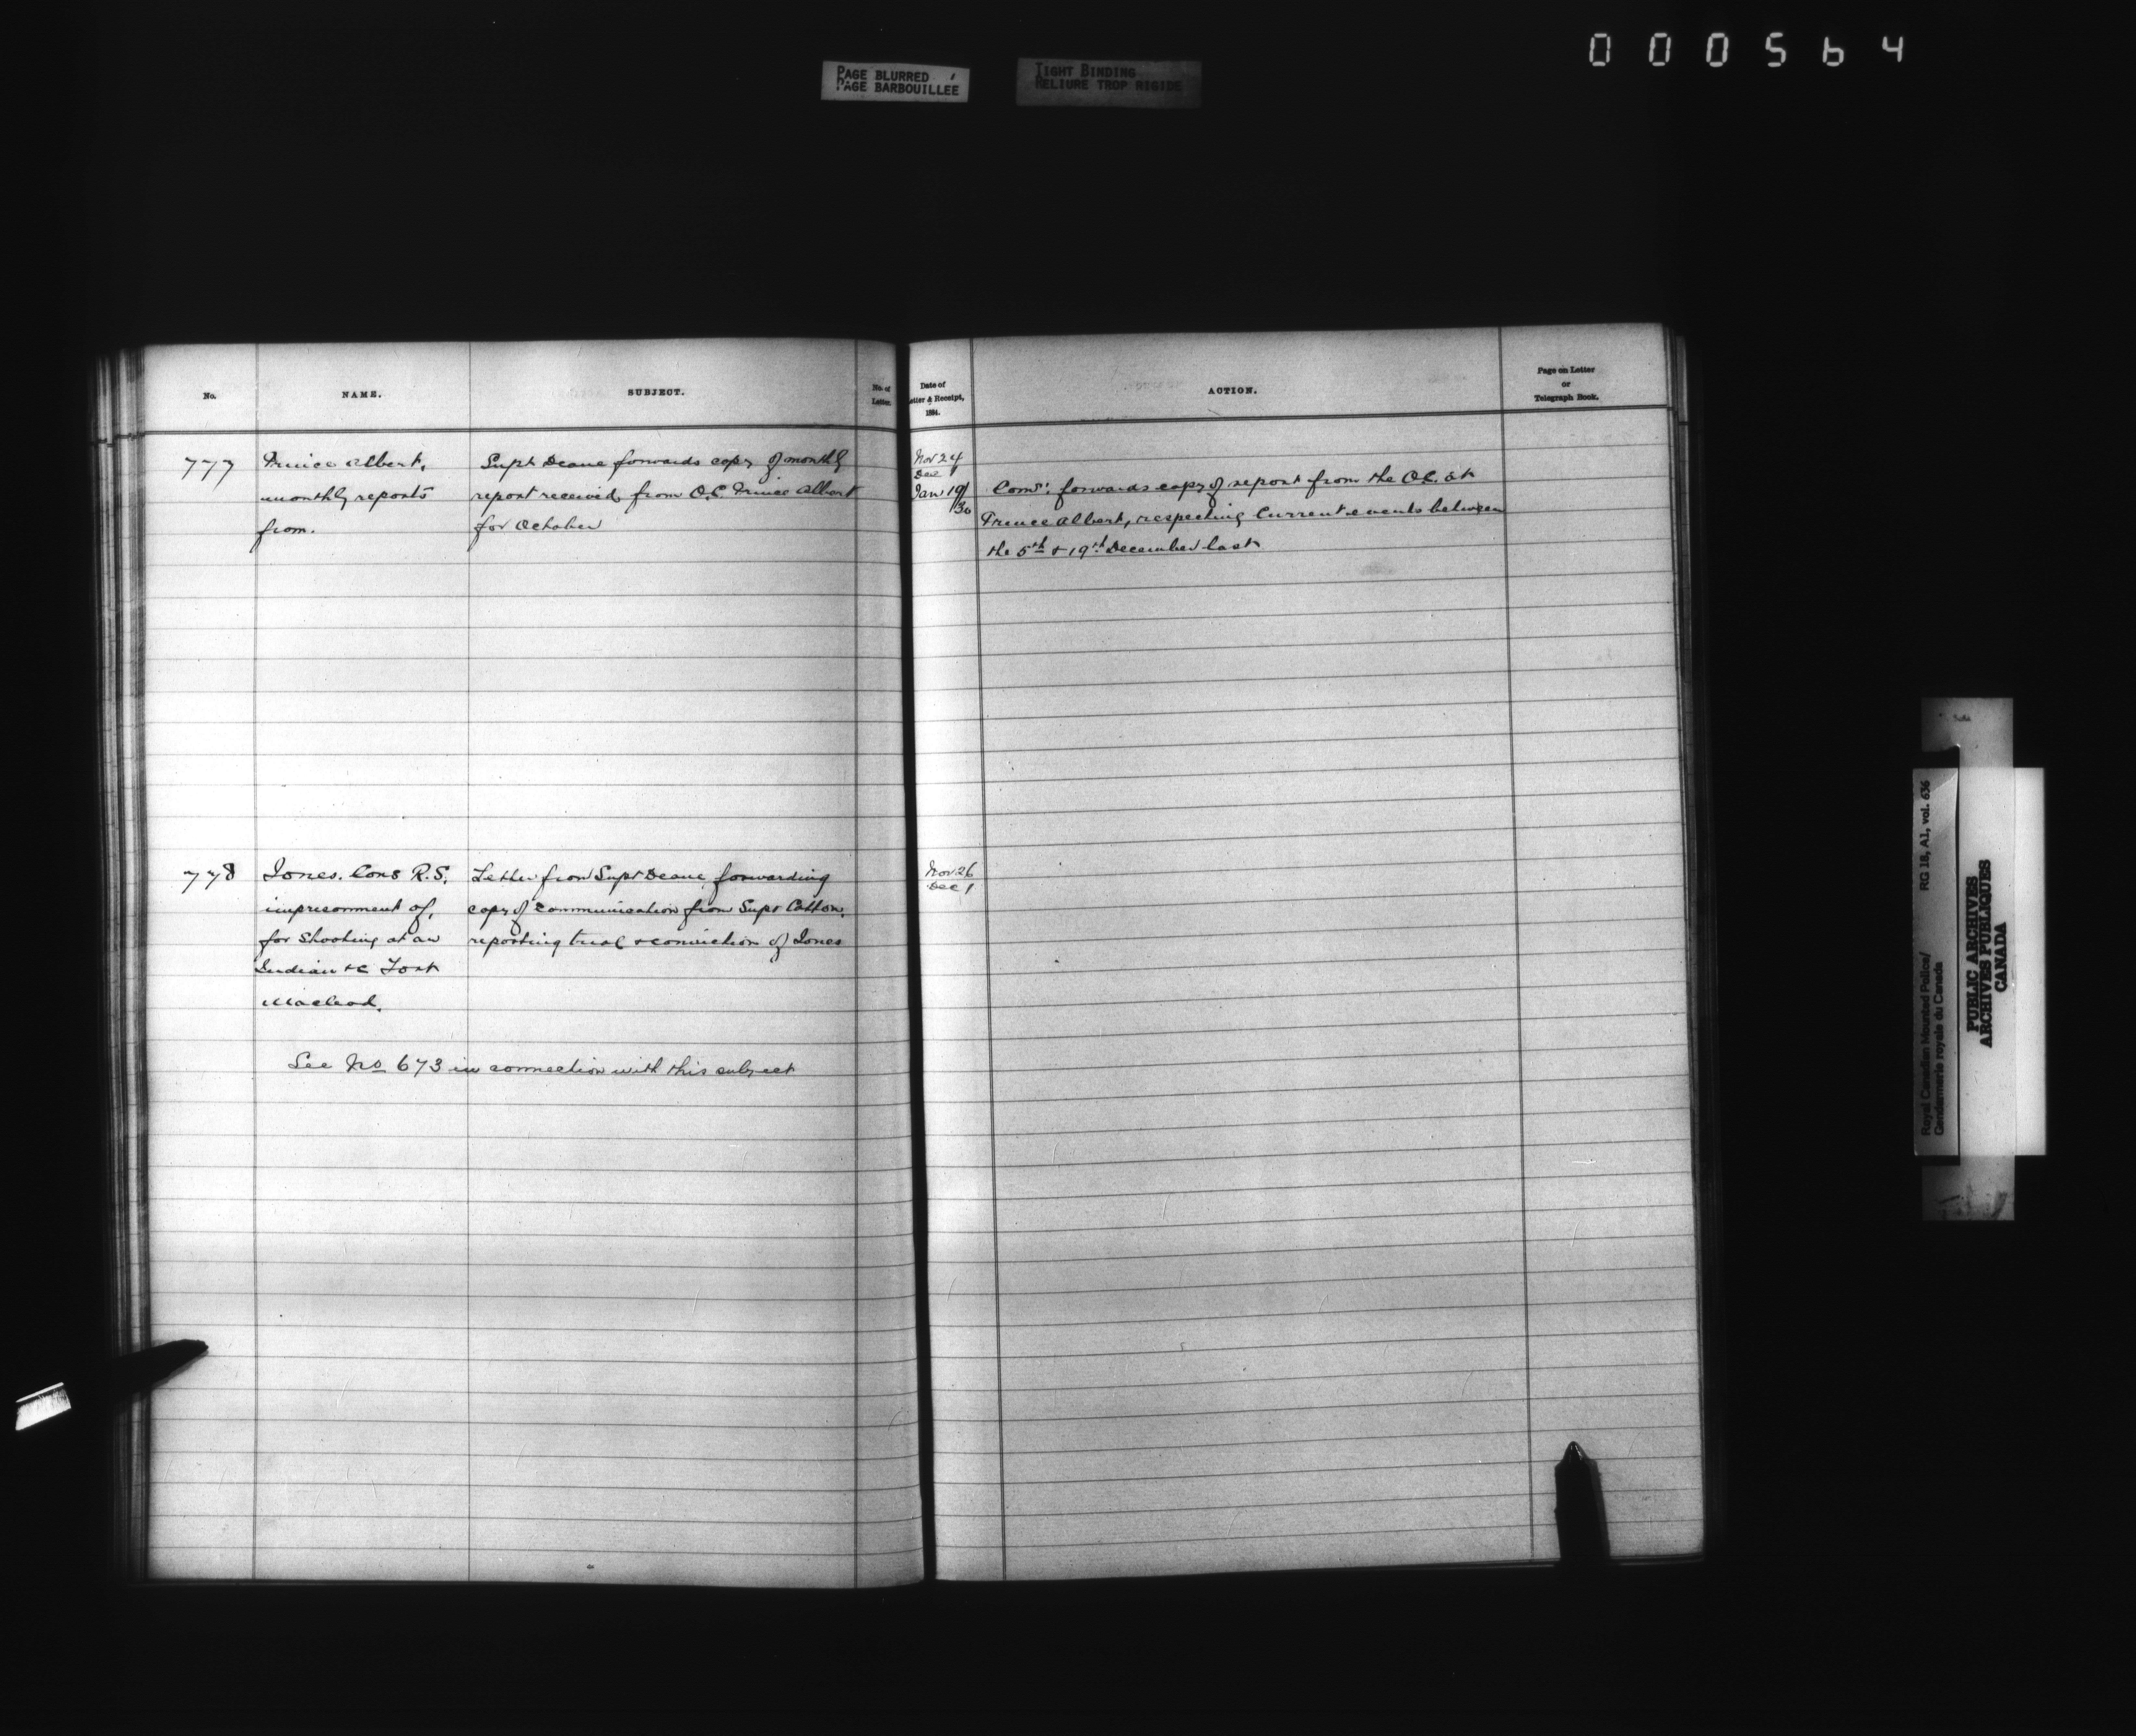 000564
PAGE BLURRED
PAGE BARBOUILLEE
TIGHT BINDING
RELIURE TROP RIGIDE
No.
NAME.
SUBJECT.
No. of
Letter.
Date of
Letter & Receipt,
1884.
ACTION.
Page on Letter
or
Telegraph Book.
777
Prince Albert,
monthly reports
from.
Supt Deane forwards copy of monthly
report received from O.C. Prince Albert
for October
Nov 24
Dec 1
Jan 19/
30
Comr. forwards copy of report from the O.C. at
Prince Albert, respecting Current events between
the 5th & 19th December last
778
Jones. Cons R.S.
imprisonment of,
for Shooting at an
Indian &c Fort
Macleod.
Letter from Supt Deane forwarding
copy of communication from Supt Cotton,
reporting trial & conviction of Jones
Nov 26
Dec 1
See No 673 in connection with this subject
Royal Canadian Mounted Police/
Gendarmerie royale du Canada
RG 18, A1, vol. 636
PUBLIC ARCHIVES
ARCHIVES PUBLIQUES
CANADA